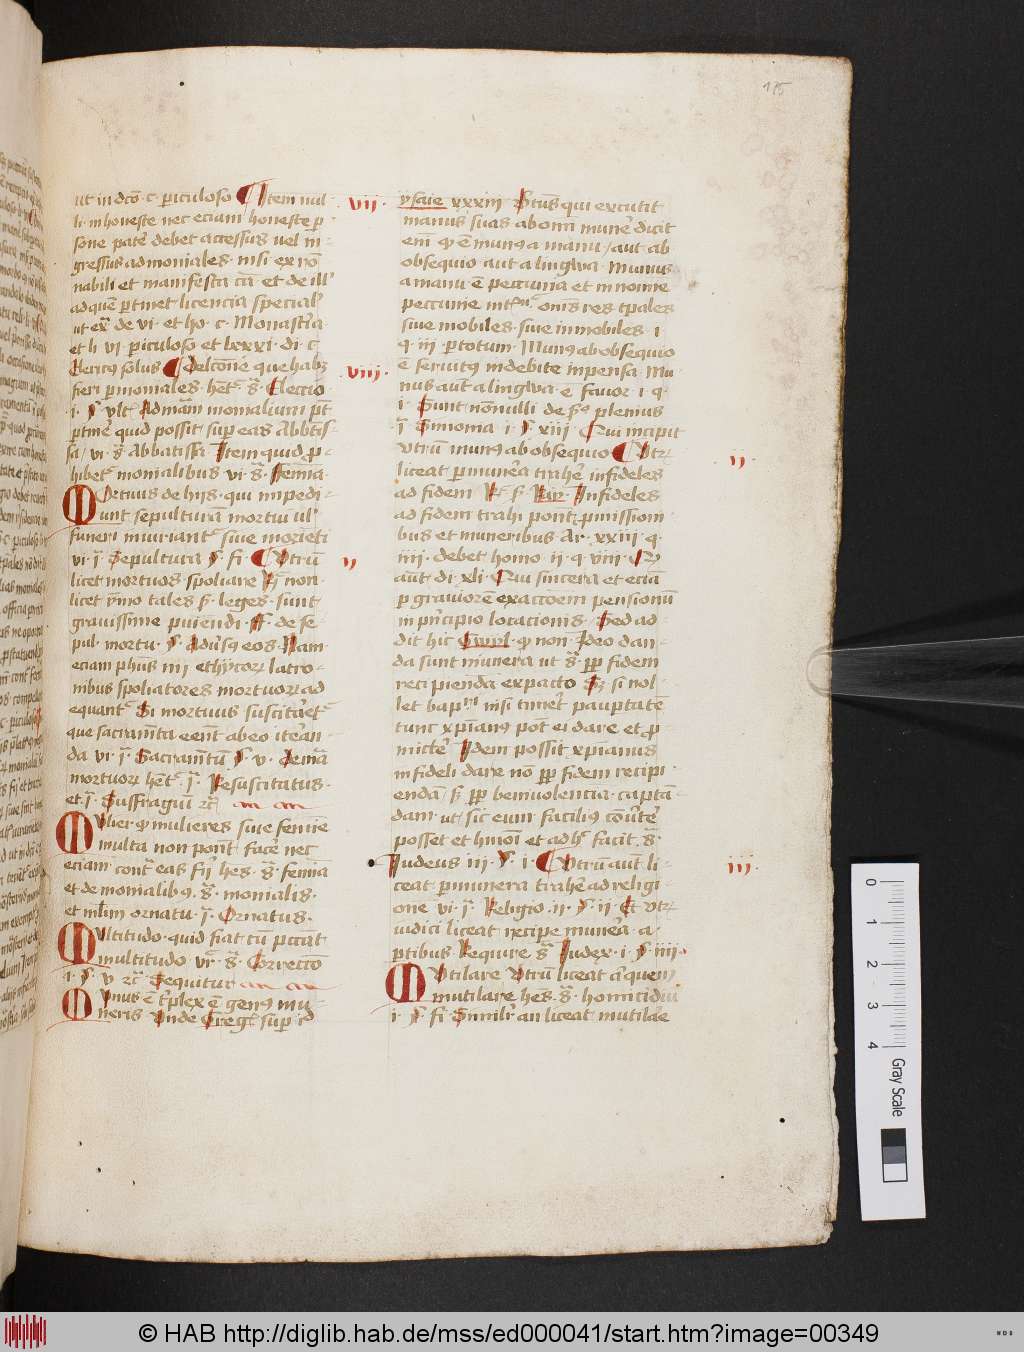 175
ut in dcō · c · periculoso ¶ Item nul- · vii ·
li · inhoneste nec eciam honeste p̱
sone patet debet accessus vel in-
gressus ad moniales · nisi ex rōn
nabili et manifesta cā · et de ill'
ad quē ptinet licencia special'
ut ex̄ de vi · et ho · c · Monastria ·
et li vi periculoso et lxxxi · di · c
Clericus solus ¶ De lcōne que habʒ · viii ·
fieri p moniales · het · s̄ · Electio ·
i · § vlt Ad mām monialium pt
ptine quid possit super eas Abbtis-
sa / vi · s̄ Abbatissa Item quid p̱-
hibet monialibus vi · s̄ · Femina ·
Mortuus de hijs · qui impedi-
unt sepulturam mortui vl'
funeri iniuriant · siue mortem
vi · ī · Sepultura § fi · ¶ Vtrū ij
licet mortuos · spoliare R̄ non
licet ymo tales s · leges · sunt
grauissime puiendi · ff · de se-
pul · mortu · § · Adūsq eos · Nam
eciam phūs iiij ethycorꝝ latro-
nibus spoliatores mortuorꝝ ad
equant Si mortuus suscitaret
que sacramēta eēnt ab eo iteran-
da vi · ī · Sacramētū § · v · Demā
mortuorꝝ het · ī · Resuscitatus ·
et · ī · Suffragiū rc̄
Mulier q mulieres siue femine
multa non ponit facere nec
eciam cont eas fij hes · s̄ · femina
et de monialibꝰ · s̄ · monialis ·
et mlim ornatu · ī · Ornatus ·
Multitudo · quid fiat cū peccat
multitudo vr · s̄ · Correctō
i · § · v · rc̄ · Sequitur
Munus ē tplex ē genꝰ mu-
neris Vnde Greg · sup id
ysaie xxxiii Btūs qui excutit
manus suas ab omni mune dicit
em̄ q ē munꝰ a manu / aut ab
obsequio aut a lingwa · Munus
a manu ē peccunia et in nomine
peccunie intr onīs res tpales
siue mobiles · siue inmobiles · i ·
q · iij · p totum · Munꝰ ab obsequio
ē seruitꝰ indebite inpensa · Mu
nus aut a lingwa ē fauor · i · q ·
i · Sunt nonnulli de sꝰ plenius
ī Simonia · i · § xiii Qui incipit
vtrū munꝰ ab obsequio ¶ Vtrꝝ ij
liceat p munera trahe infideles
ad fidem R s · Rip · Infideles
ad fidem trahi ponit · pmissioni-
bus et muneribus · Ar · xxiii · q ·
iiii · debet homo ij · q · viii · Qꝝ
aut di · xli · Qui sincera et eciā
p grauiorē exaccōem pensionū
in principio locacionis · Sed ad-
dit hic Gwil · q non Ideo dan-
da sunt munera ut s̄ · pp fidem
recipiendā ex pacto Sʒ si nol-
let bapᵐⁱ nisi timet paupertatē
tunc xpianꝰ pot ei dare et p̱
mitte Idem possit xpianus
infideli dare nō pp fidem recipi ·
endā / s · pp beniuolencia · captā-
dam · ut · sic eum facilius cōuertē
posset et hmoi et ad hͨ facit · s̄ ·
Iudeus iij · § · i · ¶ Vtrū aut li- iii ·
ceat p munera trahe ad religi-
one vi · ī · Religio · ii · § · ij Et vtrꝝ
iudici liceat recipe munera · a ·
ptibus Require s̄ Iudex · i · § iiii ·
Mutilare Vtrū liceat aliquem
mutilare hes · s̄ · homicidiū
i · § · fi · Similr an liceat mutilae
0
1
2
3
4
Gray Scale
HAB
© HAB http://diglib.hab.de/mss/ed000041/start.htm?image=00349